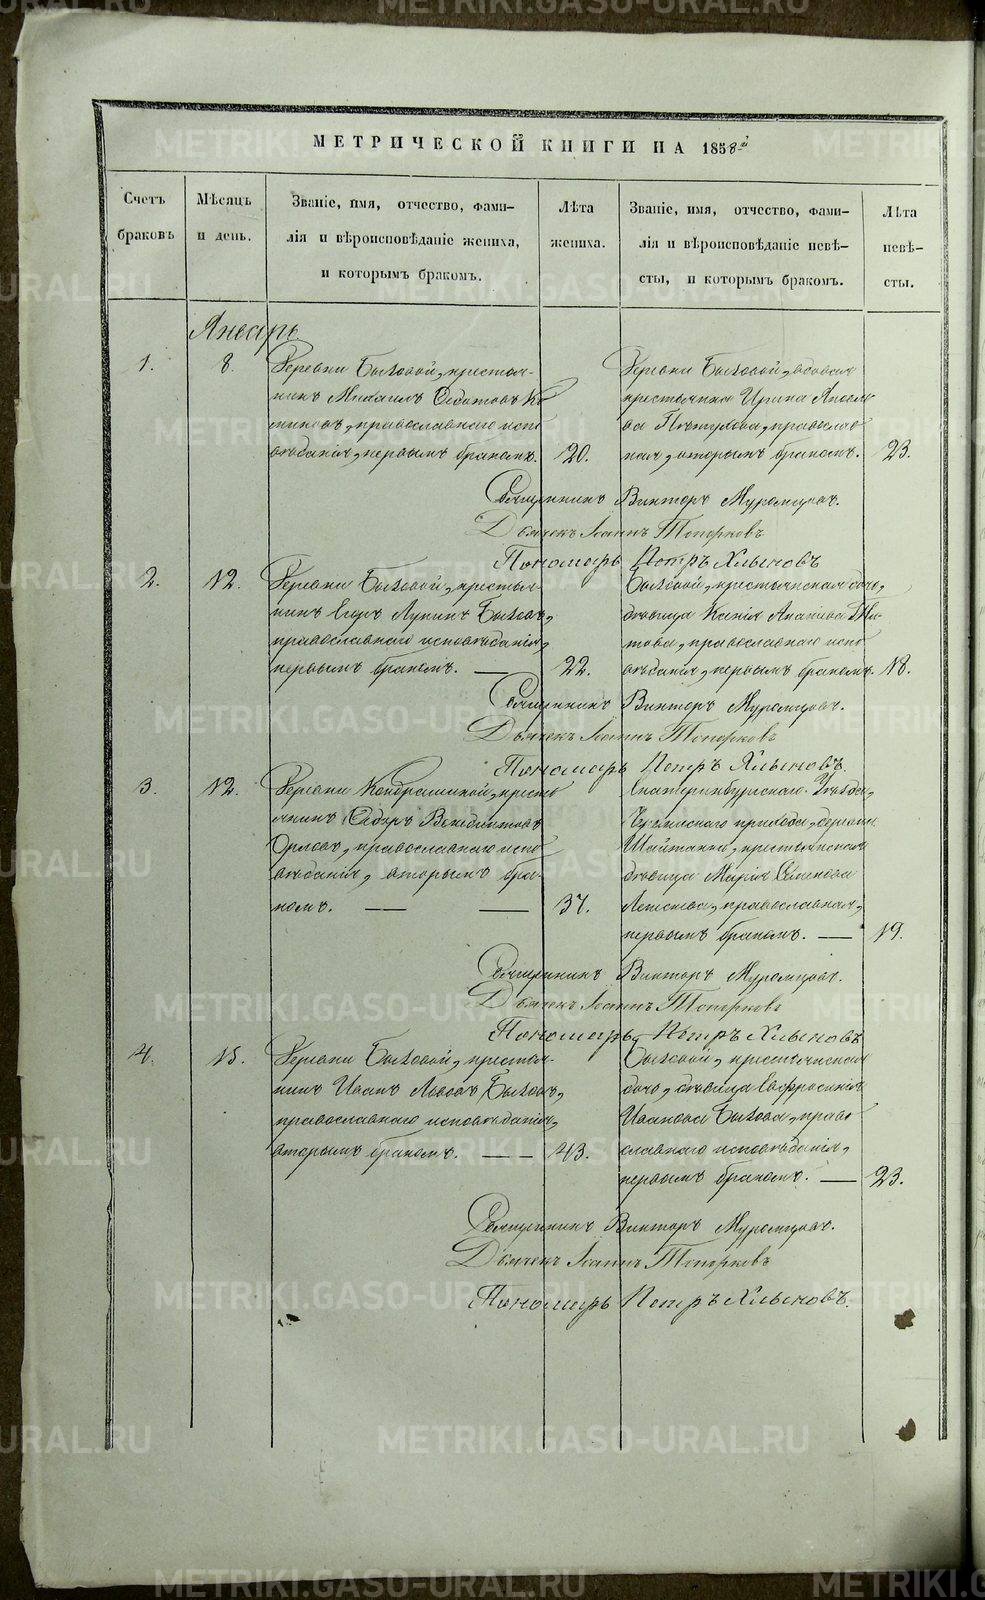 МЕТРИЧЕСКОЙ КНИГИ НА 1858й
Счетъ браковъ
Мѣсяцъ и день.
Званіе, имя, отчество, фами-
лія и вѣроисповѣданіе жениха,
и которымъ бракомъ.
Лѣта жениха.
Званіе, имя, отчество, фами-
лія и вѣроисповѣданіе невѣ-
сты, и которымъ бракомъ.
Лѣта невѣ-
сты.
Январь
1.
8.
Деревни Быховой, крестья-
нинъ Михаилъ
православнаго испо
вѣданія, первымъ бракомъ.
20.
Деревни Быховой, вдовая
крестьянка Ирина Яковле
ва православ
ная, вторымъ бракомъ.
23.
Священникъ Викторъ Муромцовъ.
Дьячекъ Іоаннъ Топорковъ
Пономарь Петръ Хлыновъ
2.
12.
Деревни Быховой, крестья-
нинъ Егоръ Лукинъ Быховъ,
православнаго исповѣданія,
первымъ бракомъ. —
22.
Быховой, крестьянская дочь,
дѣвица Ксенія Ти
това, православнаго испо
вѣданія, первымъ бракомъ.
18.
Священникъ Викторъ Муромцовъ.
Дьячекъ Іоаннъ Топорковъ
Пономарь Петръ Хлыновъ.
3.
12.
Деревни кресть
янинъ Сидоръ Венедиктовъ
Орловъ, православнаго испо
вѣданія, вторымъ бра-
комъ. — —
37.
Екатеринбургскаго Уѣзда,
прихода, деревни
Шайтанки, крестьянская
дѣвица Марія Семенова
православная,
первымъ бракомъ. —
19.
Священникъ Викторъ Муромцовъ.
Дьячекъ Іоаннъ Топорковъ
Пономарь Петръ Хлыновъ
4.
15.
Деревни Быховой, крестья-
нинъ Иванъ Львовъ Быховъ,
православнаго исповѣданія,
вторымъ бракомъ. — —
43.
Быховой, крестьянская
дочь, дѣвица Евфросинія
Иванова Быхова, право
славнаго исповѣданія,
первымъ бракомъ. —
23.
Священникъ Викторъ Муромцовъ.
Дьячекъ Іоаннъ Топорковъ
Пономарь Петръ Хлыновъ.
METRIKI.GASO-URAL.RU